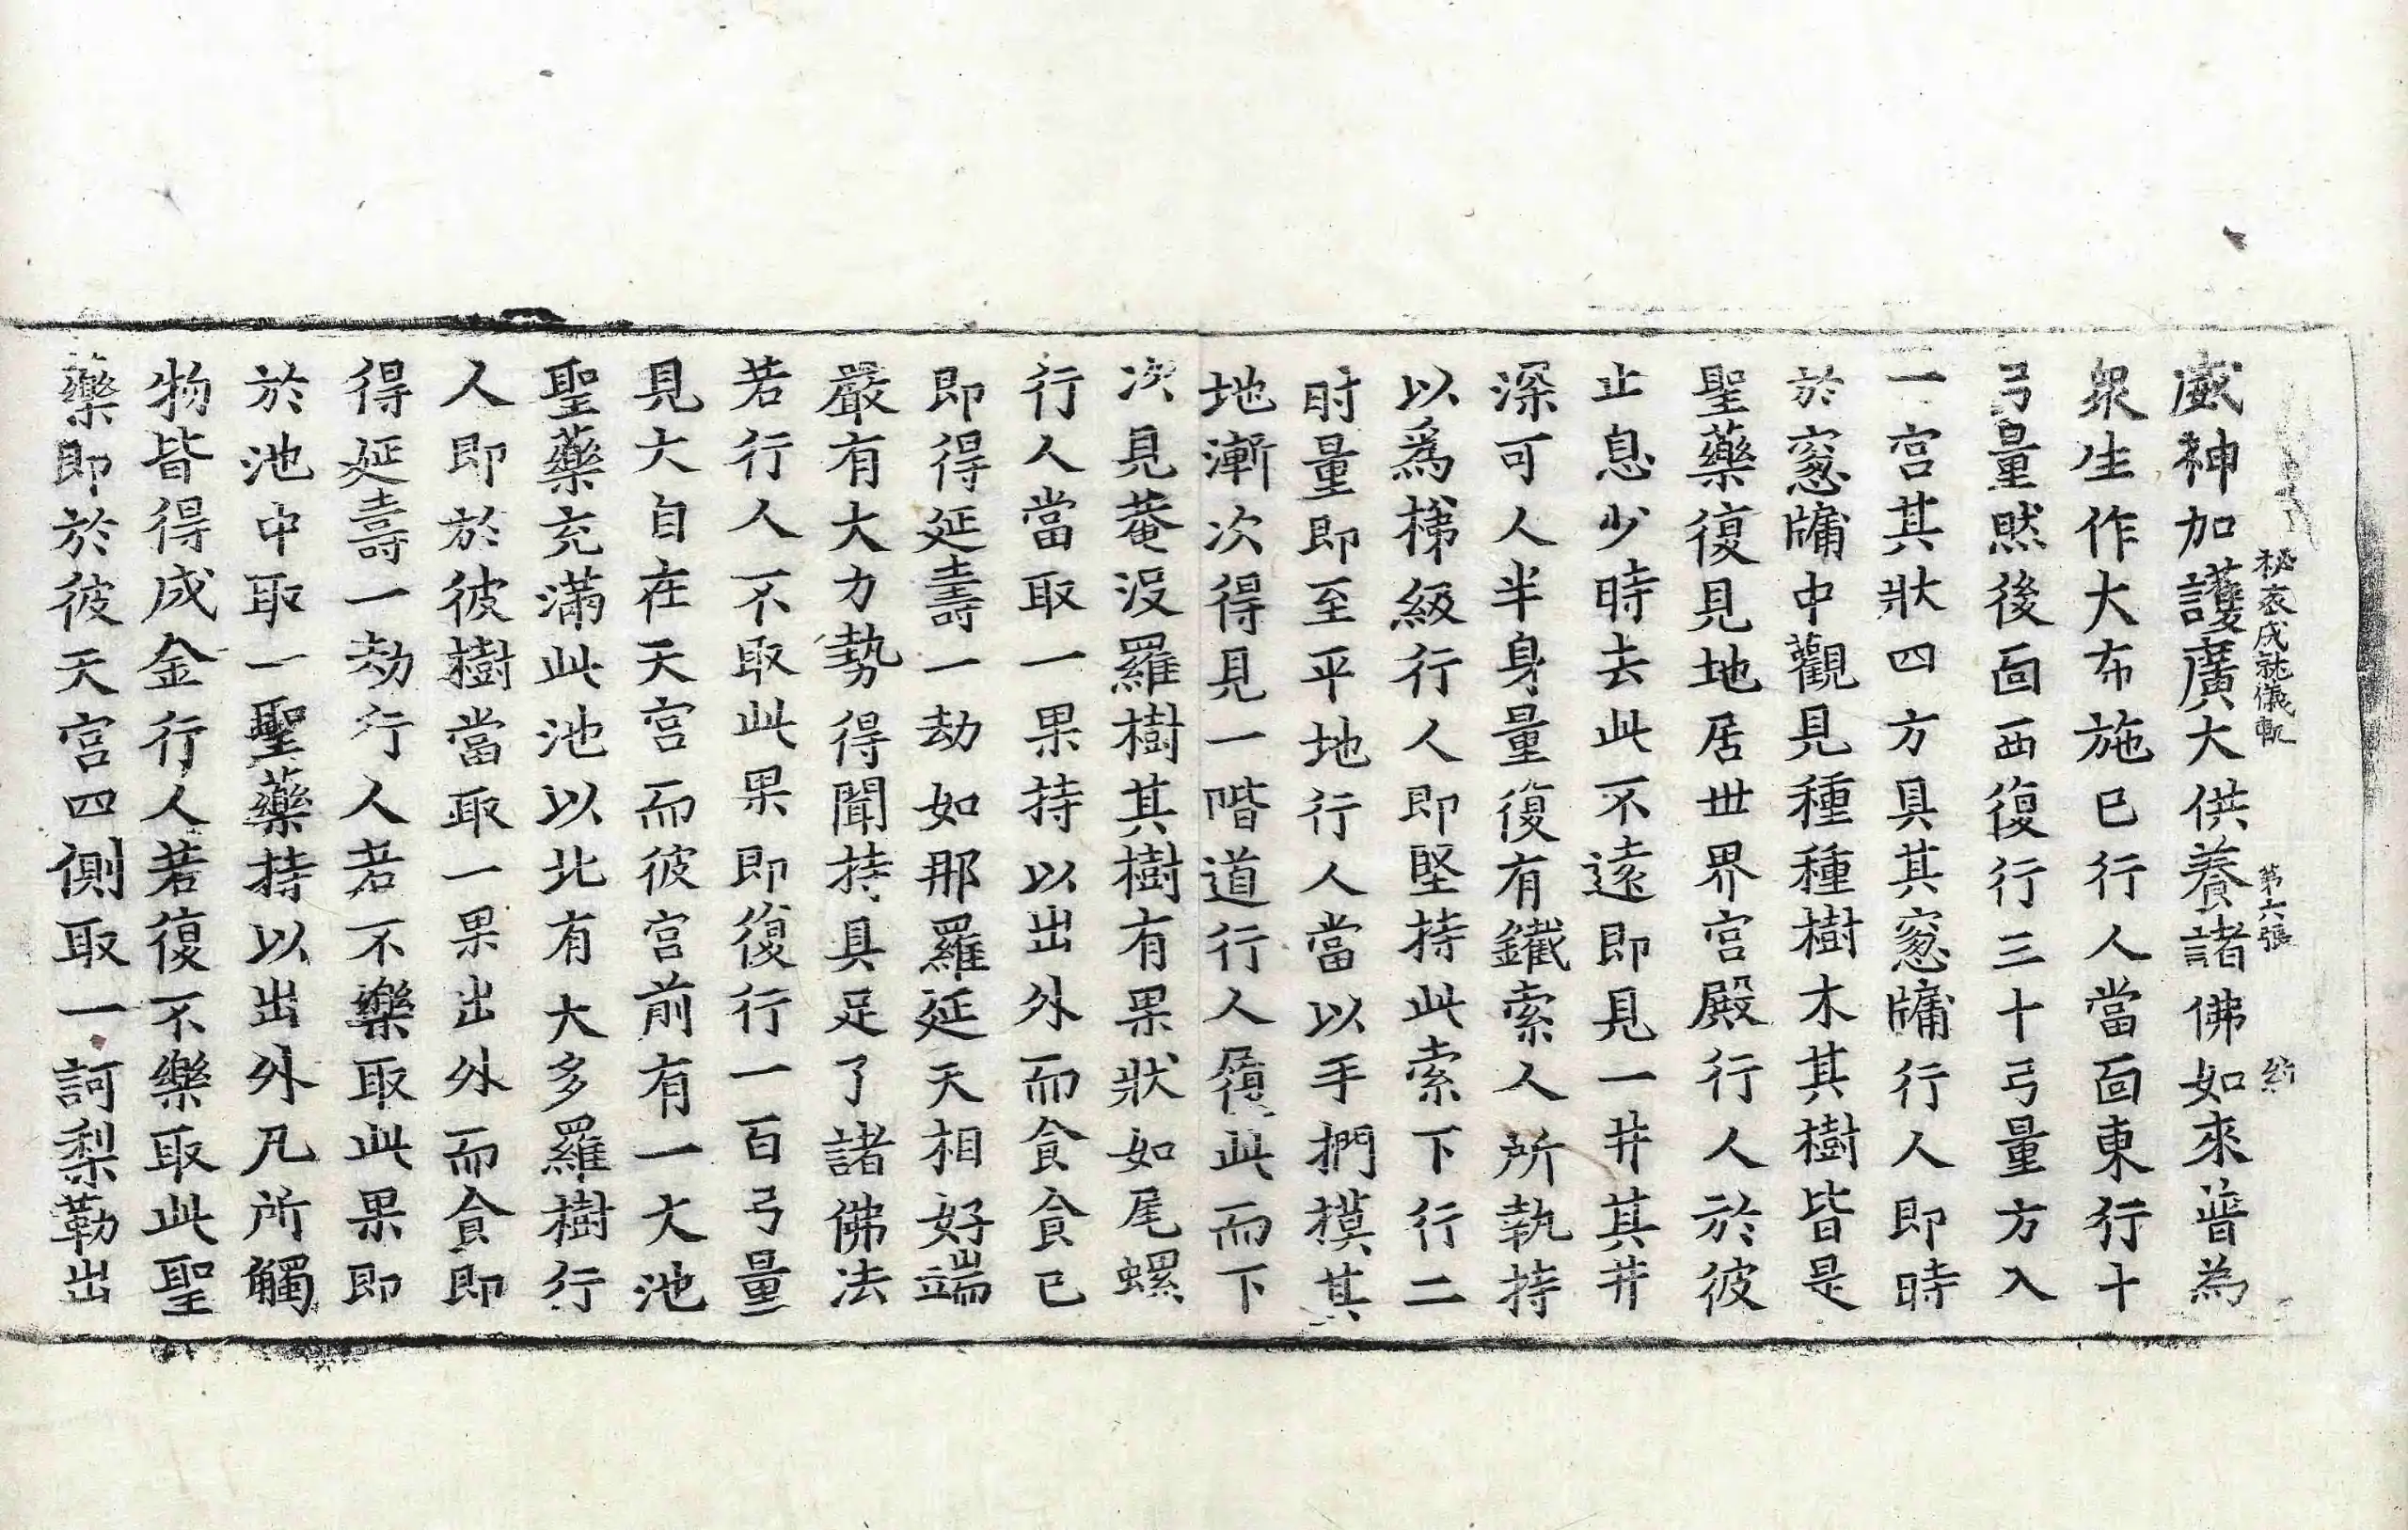 秘密成就儀軌　第六張　約
威神加護廣大供養諸佛如來普為
眾生作大布施已行人當面東行十
弓量然後面西復行三十弓量方入
一宮其狀四方具其窓牗行人即時
於窓牗中觀見種種樹木其樹皆是
聖藥復見地居世界宮殿行人於彼
止息少時去此不遠即見一井其井
深可人半身量復有鐵索人所執持
以爲梯級行人即堅持此索下行二
時量即至平地行人當以手捫摸其
地漸次得見一階道行人履此而下
次見菴沒羅樹其樹有果狀如尾螺
行人當取一果持以出外而食食已
即得延壽一劫如那羅延天相好端
嚴有大力勢得聞持具足了諸佛法
若行人不取此果即復行一百弓量
見大自在天宮而彼宮前有一大池
聖藥充滿此池以北有大多羅樹行
人即於彼樹當取一果出外而食即
得延壽一劫行人若不樂取此果即
於池中取一聖藥持以出外凡所觸
物皆得成金行人若復不樂取此聖
藥即於彼天宮四側取一訶梨勒出